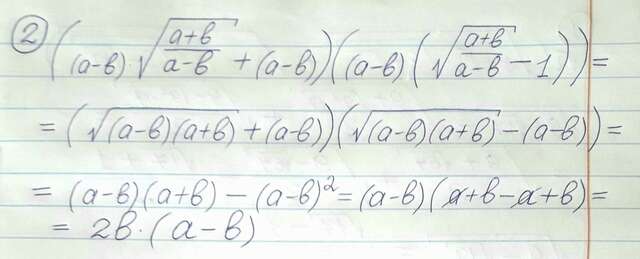 ② ((a-b)√((a+b)/(a-b)) + (a-b))((a-b)(√((a+b)/(a-b)) - 1)) =
= (√((a-b)(a+b)) + (a-b))(√((a-b)(a+b)) - (a-b)) =
= (a-b)(a+b) - (a-b)² = (a-b)(a+b-a+b) =
= 2b·(a-b)